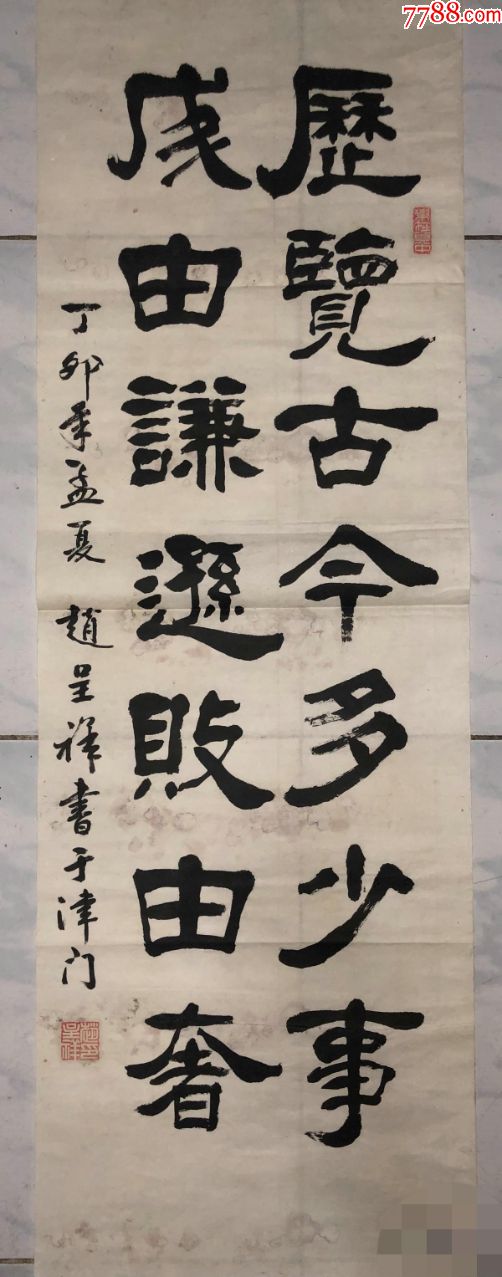 7788.com
歷覽古今多少事
成由謙遜敗由奢
丁卯年孟夏 趙呈祥書于津门